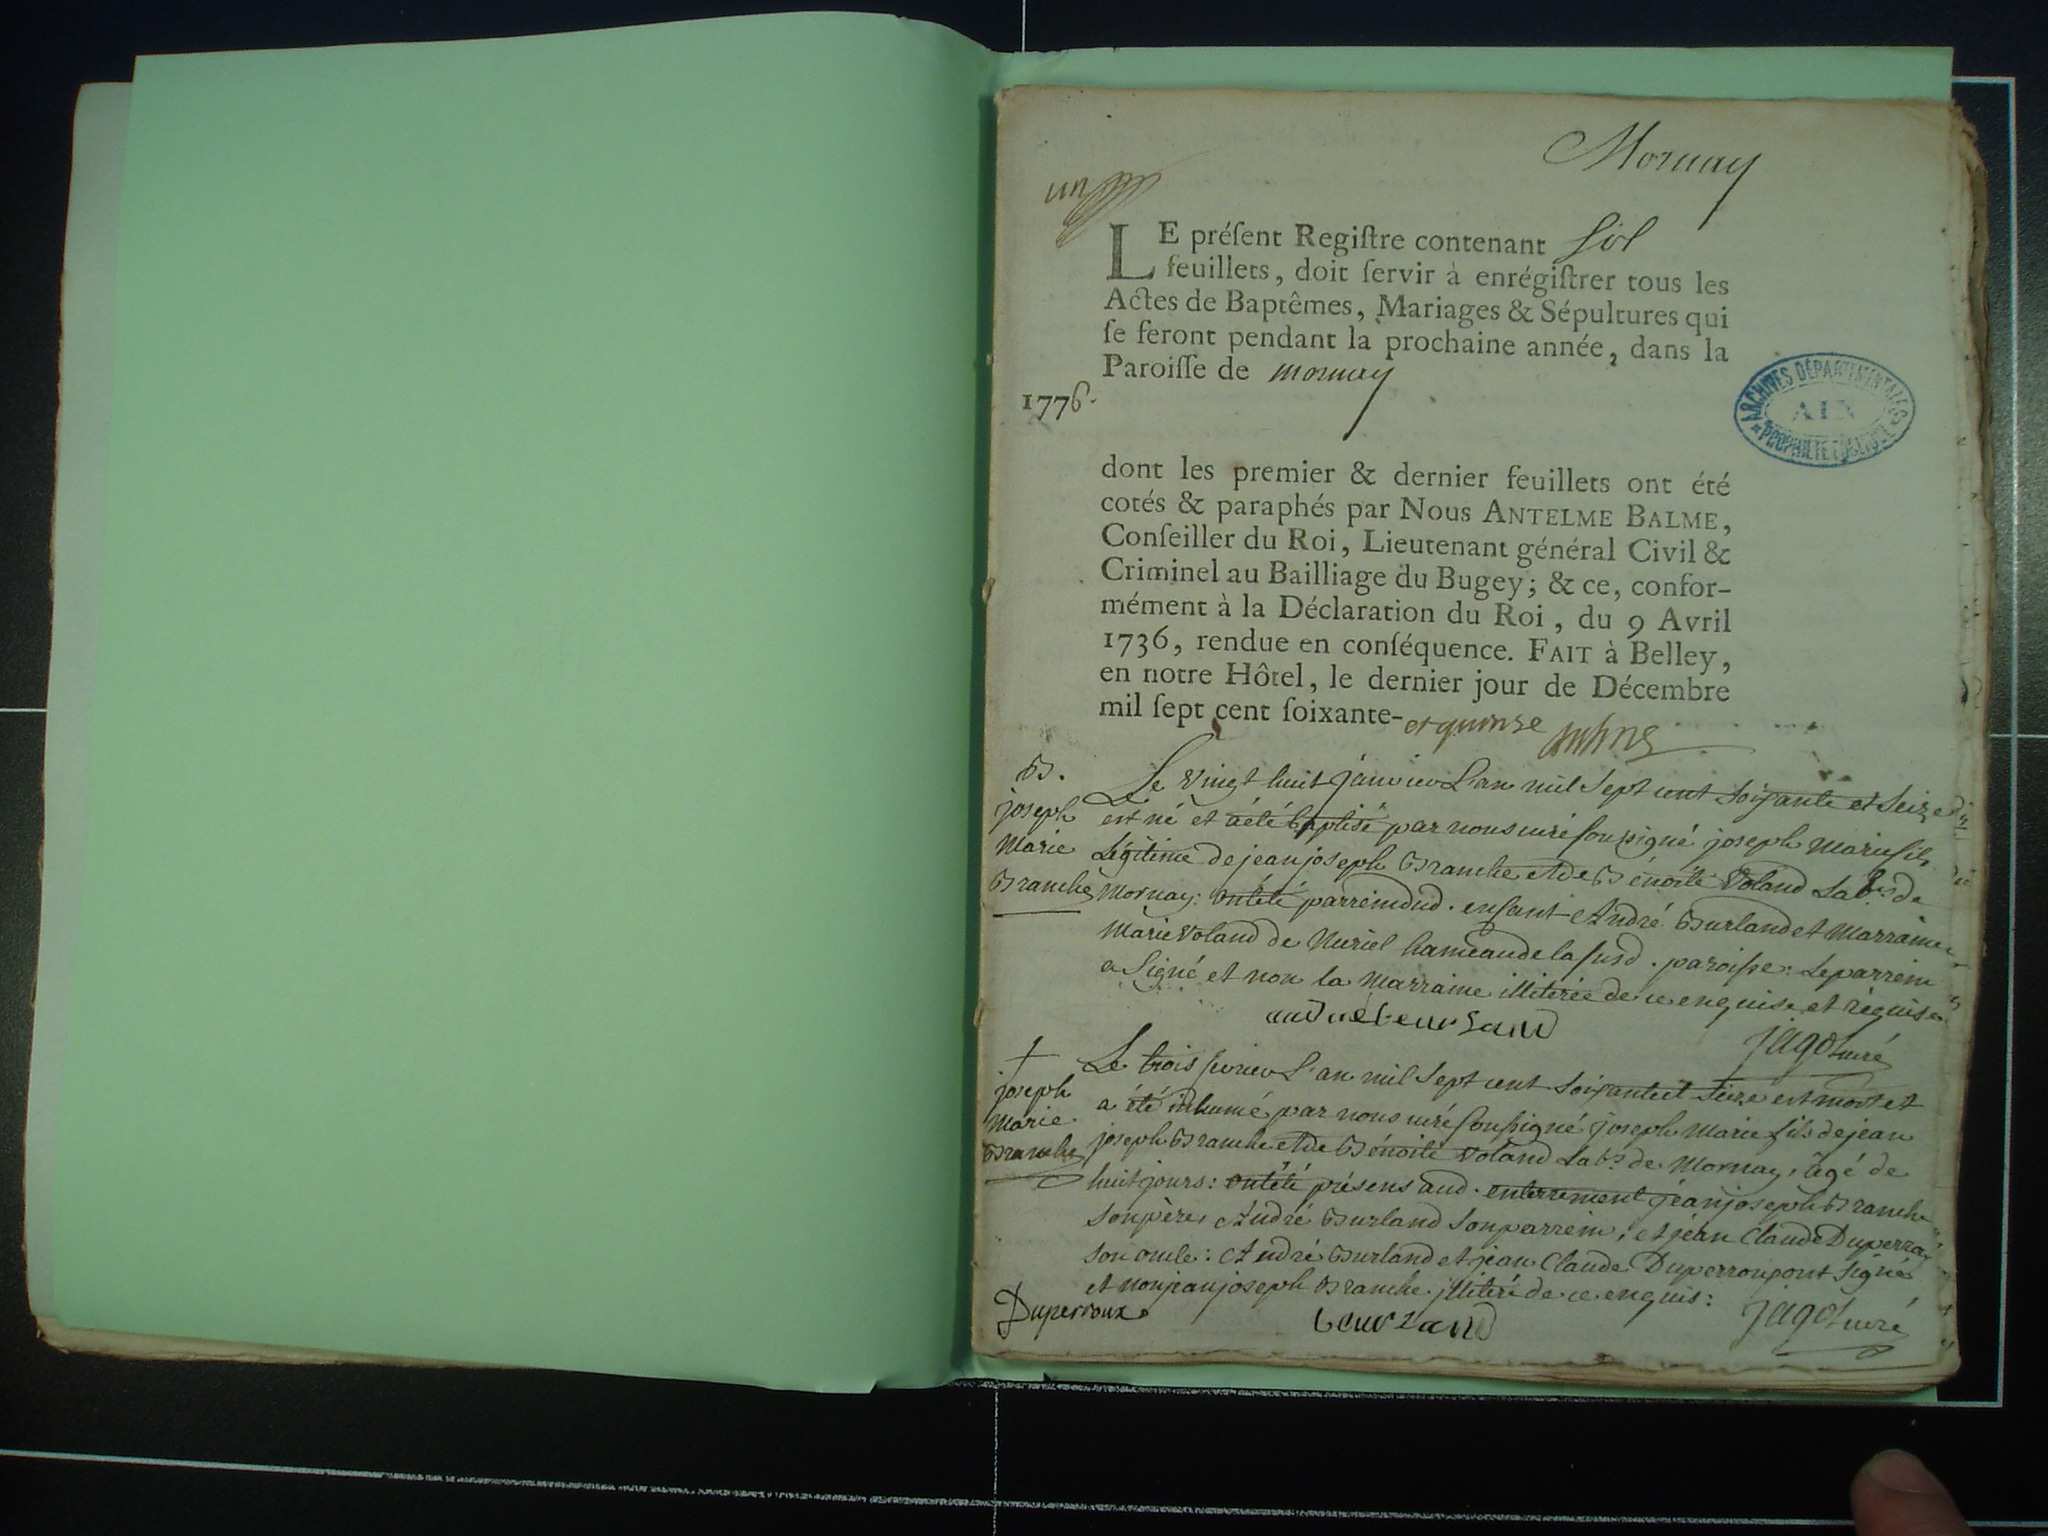 Mornay
un
LE préſent Regiſtre contenant ſix
feuillets, doit ſervir à enrégiſtrer tous les
Actes de Baptêmes, Mariages & Sépultures qui
ſe feront pendant la prochaine année, dans la
Paroiſſe de mornay
1776.
ARCHIVES DÉPARTEMENTALES
AIN
PROPRIÉTÉ PUBLIQUE
dont les premier & dernier feuillets ont été
cotés & paraphés par Nous ANTELME BALME,
Conſeiller du Roi, Lieutenant général Civil &
Criminel au Bailliage du Bugey; & ce, confor-
mément à la Déclaration du Roi, du 9 Avril
1736, rendue en conſéquence. FAIT à Belley,
en notre Hôtel, le dernier jour de Décembre
mil ſept cent ſoixante- et quinze
B.
joseph
Marie
Branche
Le vingt huit janvier L'an mil Sept cent Soixante et Seize
est né et a été baptisé par nous curé Soussigné joseph Marie fils
Légitime de jean joseph Branche et de Bénoite Voland Lab.rs de
Mornay: ont été parrein dud. enfant André Burland et Marraine
Marie Voland de Nuriel hameau de la susd. paroisse: Le parrein
a Signé et non la Marraine illiterée de ce enquise et réquise
andré beurland
jagot curé
†
joseph
Marie
Branche
Le trois fevrier L'an mil Sept cent Soixante et Seize est mort et
a été inhumé par nous curé Soussigné joseph Marie fils de jean
joseph Branche et de Bénoite Voland Lab.rs de Mornay, âgé de
huit jours: ont été présens aud. enterrement jean joseph Branche
Son père, André Burland Son parrein, et jean Claude Duperroux
Son oncle: André Burland et jean Claude Duperroux ont Signé
et non jean joseph Branche illiteré de ce enquis:
Duperroux
beurland
jagot curé